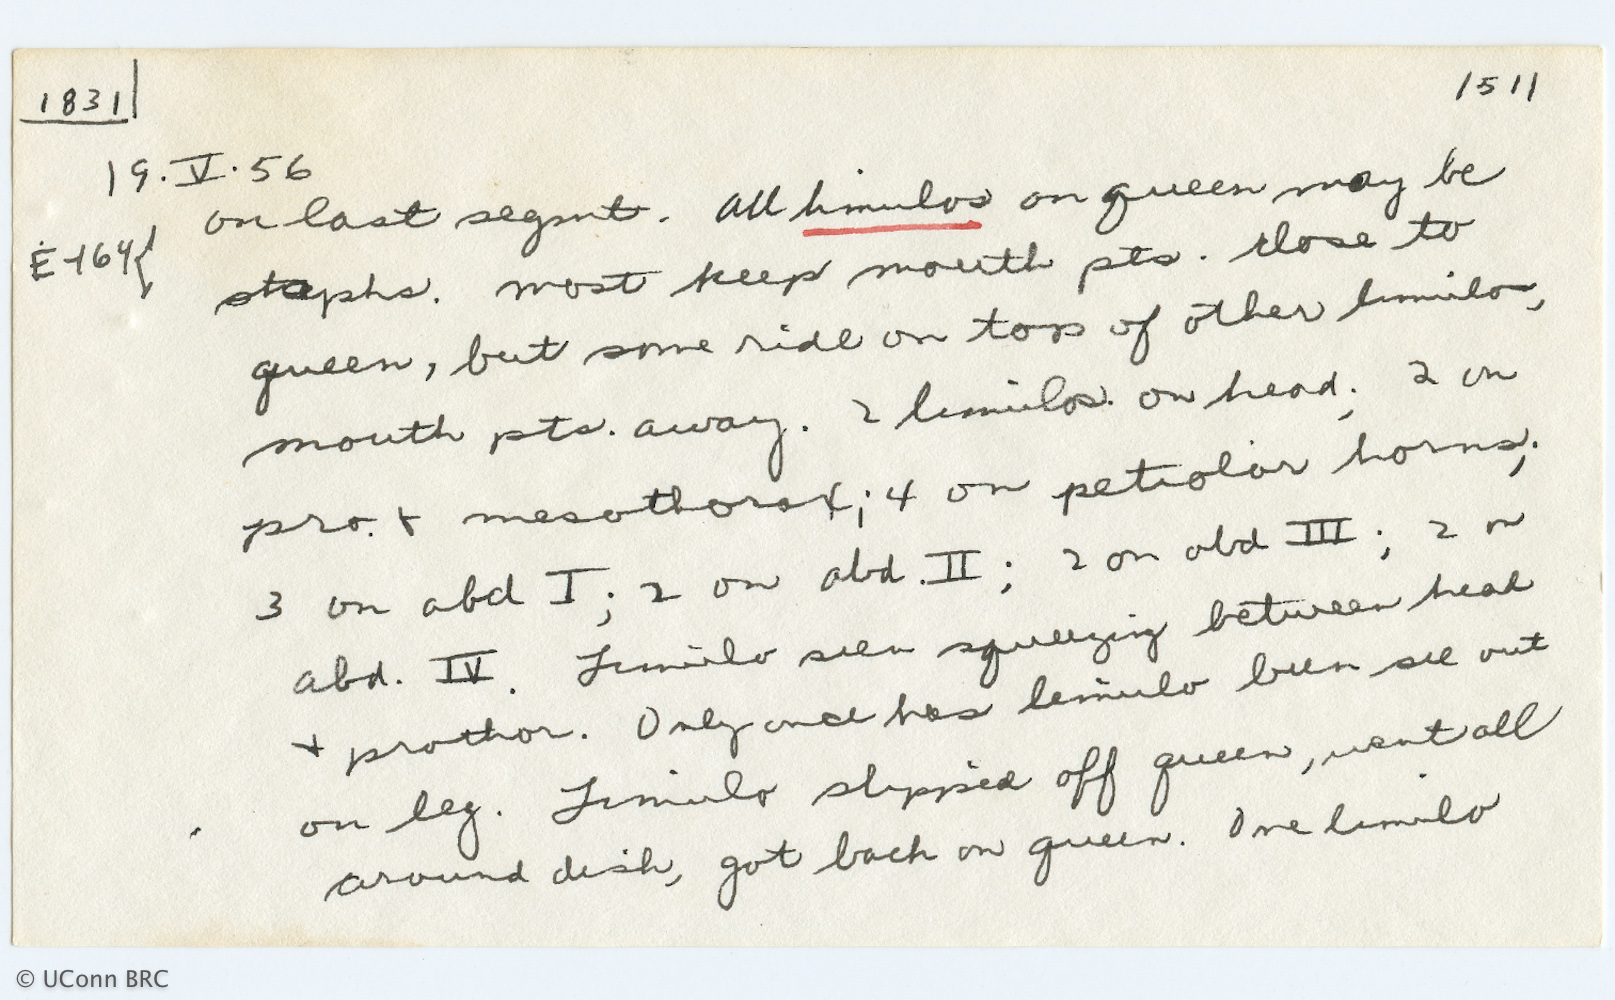 1831
1511
19.V.56
on last segmt. All limulos on queen may be
E-164{
staphs. most keep mouth pts. close to
queen, but some ride on top of other limulo,
mouth pts. away. 2 limulos. on head; 2 on
pro. + mesothorax; 4 on petiolar horns;
3 on abd I; 2 on abd. II; 2 on abd III; 2 on
abd. IV. Limulo seen squeezing between head
+ prothor. Only once has limulo been see out
on leg. Limulo slipped off queen, went all
around dish, got back on queen. One limulo
© UConn BRC